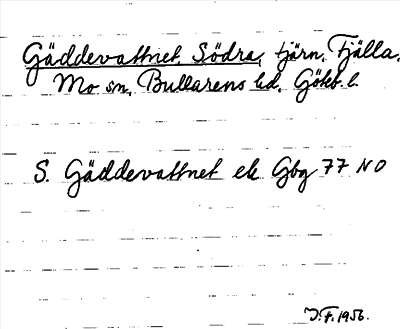 Gäddevattnet, Södra, tjärn, Fjälla.
Mo sn, Bullarens hd, Göteb. l.
S. Gäddevattnet ek Gbg 77 NO
J.F. 1956.